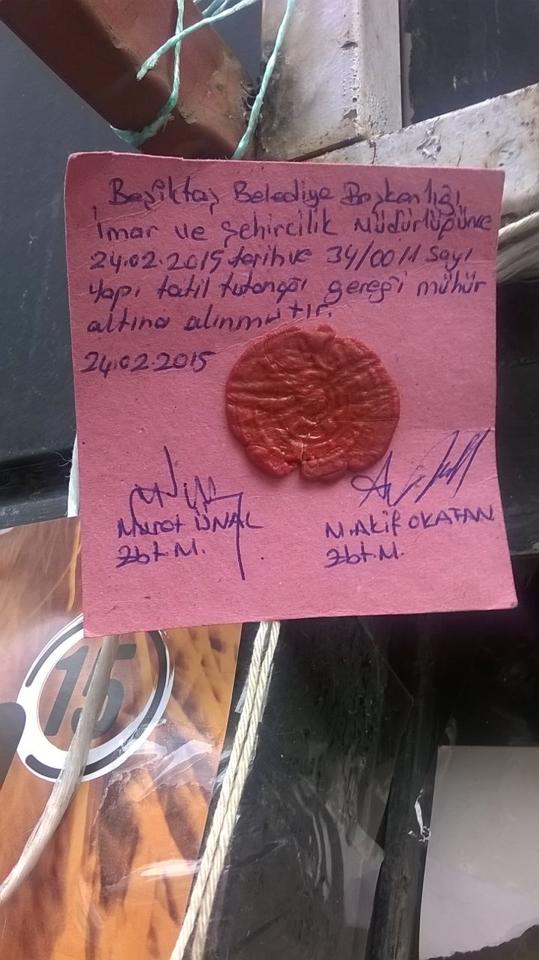 Beşiktaş Belediye Başkanlığı
İmar ve Şehircilik Müdürlüğünce
24.02.2015 tarih ve 34/0011 sayı
yapı tatil tutanağı gereği mühür
altına alınmıştır.
24.02.2015
Murat ÜNAL
Zbt M.
M.Akif OKATAN
Zbt.M.
15